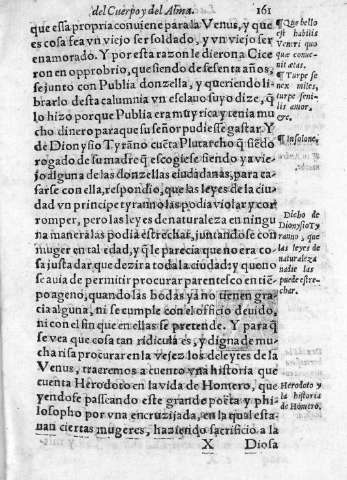 del Cuerpo y del Alma. 161
que essa propria conuiene para la Venus, y que
es cosa fea vn viejo ser soldado, y vn viejo ser
enamorado. Y por esta razon le dieron a Cice
ron en opprobrio, que siendo de sesenta años,
se junto con Publia donzella, y queriendo li-
brarlo desta calumnia vn esclauo suyo dize, q̃
lo hizo porque Publia era muy rica y tenia mu
cho dinero para que su señor pudiesse gastar. Y
de Dionysio Tyrãno cuẽta Plutarcho q̃ siẽdo
rogado de su madre q̃ escogiese siendo ya vie-
jo alguna de las donzellas ciudadanas, para ca-
sarse con ella, respondio, que las leyes de la ciu-
dad vn principe tyranno las podia violar y cor
romper, pero las leyes de naturaleza en ningu
na manera las podia estrechar, juntandose con
muger en tal edad, y q̃ le parecia que no era co-
sa justa dar que dezir a toda la ciudad: y que no
se auia de permitir procurar parentesco en tiẽ-
po ageno, quando las bodas ya no tienen gra-
cia alguna, ni se cumple con el officio deuido,
ni con el fin que en ellas se pretende. Y para q̃
se vea que cosa tan ridicula es, y digna de mu-
cha risa procurar en la vejez los deleytes de la
Venus, traeremos a cuento vna historia que
cuenta Herodoto en la vida de Homero, que
yendose passeando este grande poëta y phi-
losopho por vna encruzijada, en la qual esta-
uan ciertas mugeres, haziendo sacrificio a la
X Diosa
¶ Que bello
est habilis
Veneri quo
que conue-
nit ætas.
¶ Turpe se
nex miles,
turpe seni-
lis amor,
&c.
¶ In solone.
Dicho de
Dionysio Ty
ranno, que
las leyes de
naturaleza
nadie las
puede estre-
char.
Herodoto y
la historia
de Homero.